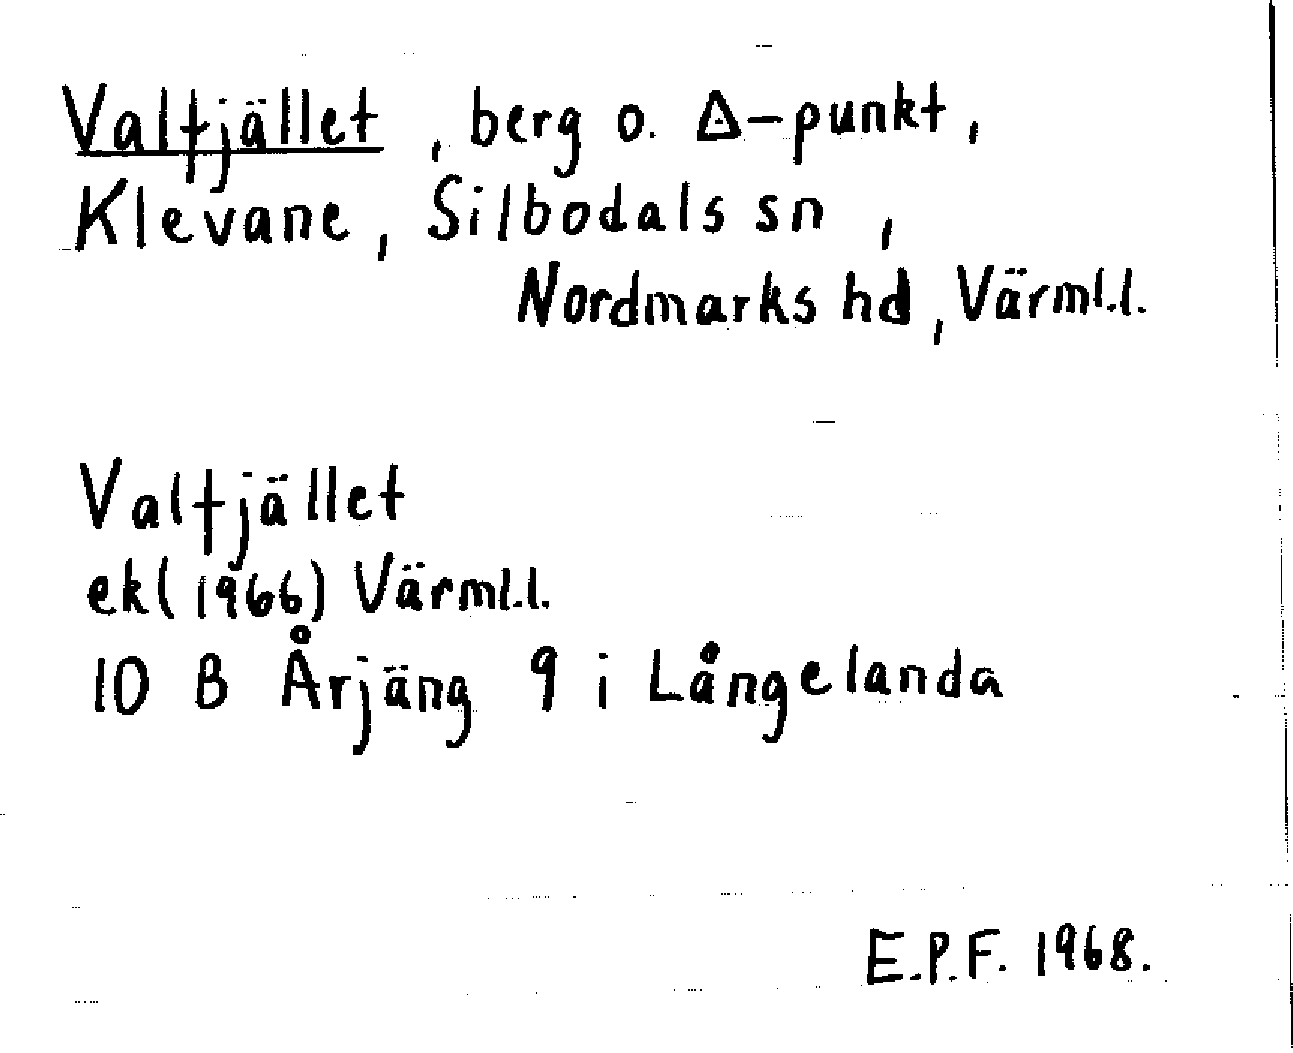 Valfjället, berg o. Δ-punkt,
Klevane, Silbodals sn,
Nordmarks hd, Värml.l.
Valfjället
ek(1966) Värml.l.
10 B Årjäng 9 i Långelanda
E.P.F. 1968.